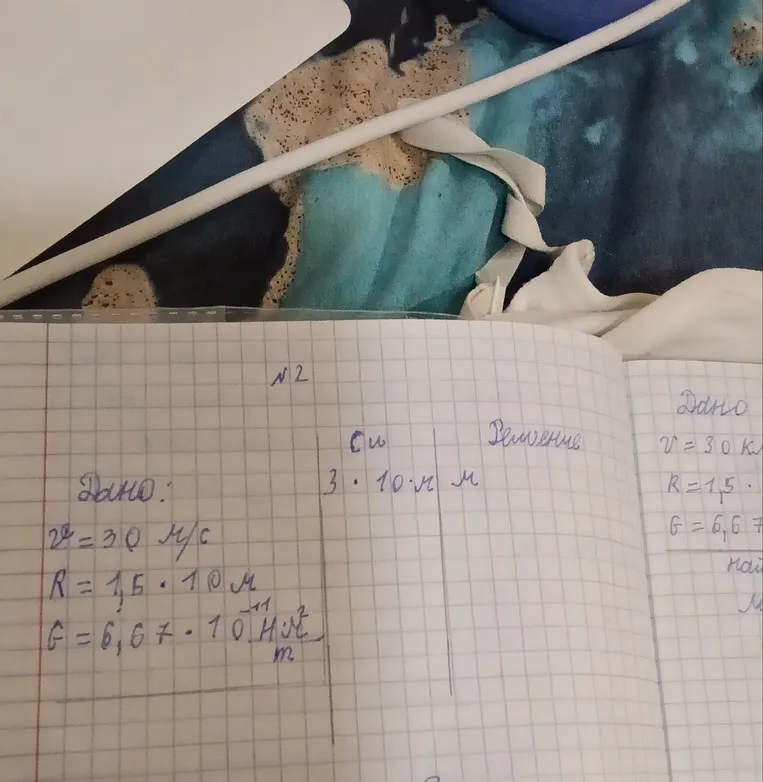 №2
Дано:
v = 30 м/с
R = 1,5 · 10 м
G = 6,67 · 10⁻¹¹ Н·м²
m
Си
3 · 10 · м м
Решение
Дано
v = 30 к
R = 1,5 ·
G = 6,67
най